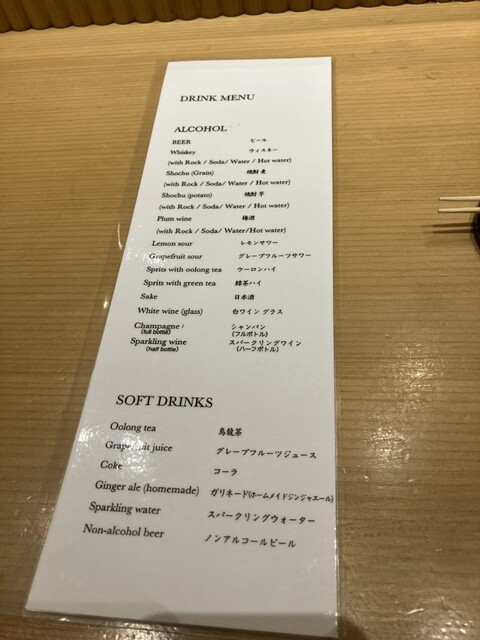 DRINK MENU
ALCOHOL
BEER ビール
Whiskey ウィスキー
(with Rock / Soda/ Water / Hot water)
Shochu (Grain) 焼酎 麦
(with Rock / Soda/ Water / Hot water)
Shochu (potato) 焼酎 芋
(with Rock / Soda/ Water / Hot water)
Plom wine 梅酒
(with Rock / Soda/ Water/Hot water)
Lemon sour レモンサワー
Grapefruit sour グレープフルーツサワー
Sprits with oolong tea ウーロンハイ
Sprits with green tea 緑茶ハイ
Sake 日本酒
White wine (glass) 白ワイン グラス
Champagne シャンパン
(full bottle) (フルボトル)
Sparkling wine スパークリングワイン
(half bottle) (ハーフボトル)
SOFT DRINKS
Oolong tea 烏龍茶
Grapefruit juice グレープフルーツジュース
Coke コーラ
Ginger ale (homemade) ガリネード(ホームメイドジンジャエール)
Sparkling water スパークリングウォーター
Non-alcohol beer ノンアルコールビール